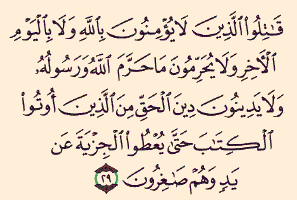 قَٰتِلُوا۟ ٱلَّذِينَ لَا يُؤْمِنُونَ بِٱللَّهِ وَلَا بِٱلْيَوْمِ
ٱلْأٓخِرِ وَلَا يُحَرِّمُونَ مَا حَرَّمَ ٱللَّهُ وَرَسُولُهُۥ
وَلَا يَدِينُونَ دِينَ ٱلْحَقِّ مِنَ ٱلَّذِينَ أُوتُوا۟
ٱلْكِتَٰبَ حَتَّىٰ يُعْطُوا۟ ٱلْجِزْيَةَ عَن
يَدٍ وَهُمْ صَٰغِرُونَ ٢٩